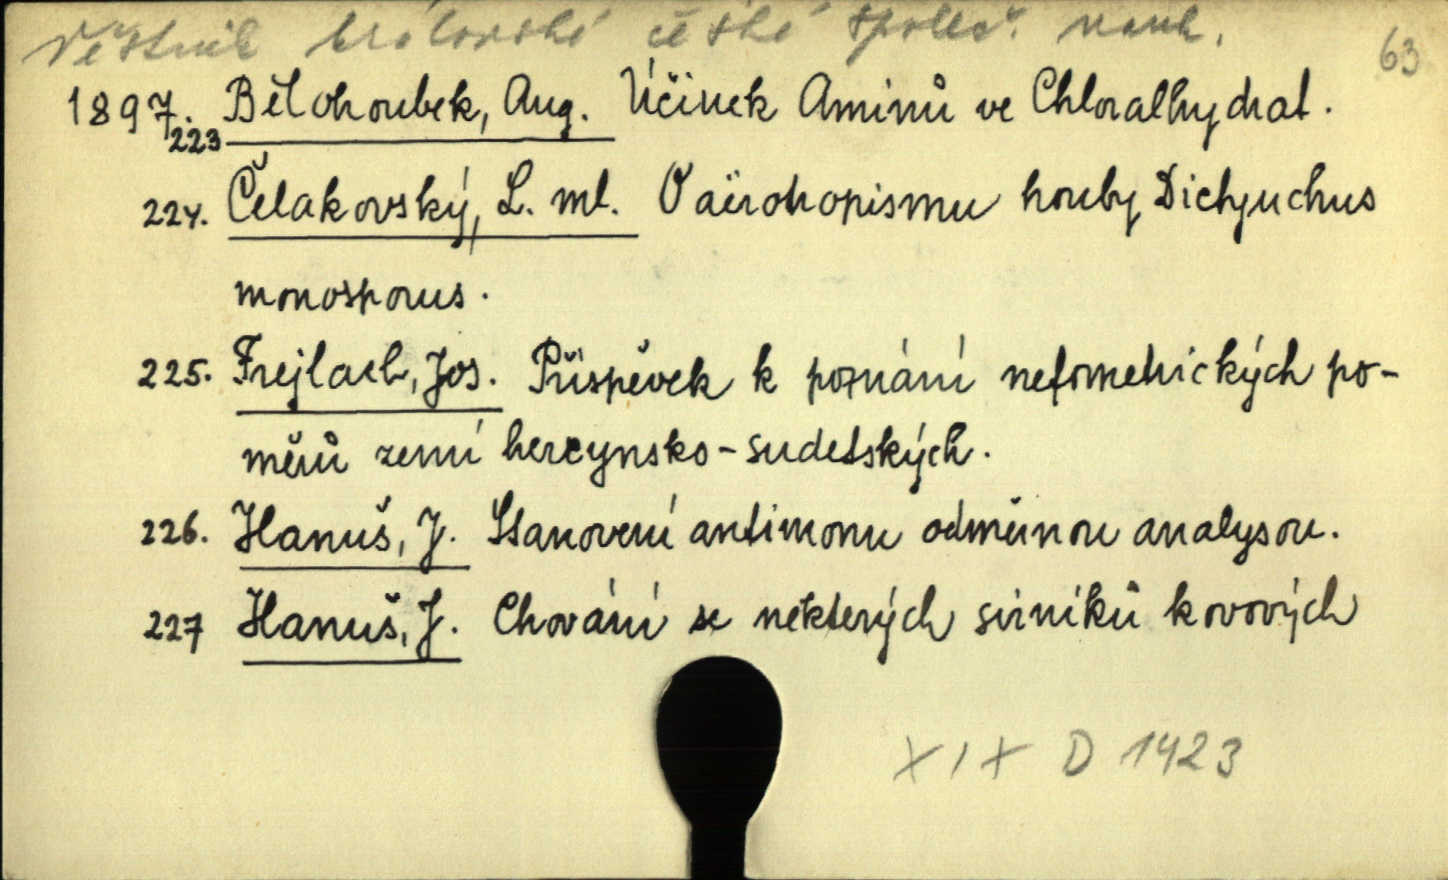 Věstník královské české společ. nauk.
63
1897. Bělohoubek, Aug. Účinek Aminů ve Chloralhydrat.
223
224. Čelakovský, L. ml. O aërotropismu houby Dictyuchus
monosporus.
225. Frejlach, Jos. Příspěvek k poznání nefometrických po-
měrů zemí hercynsko-sudetských.
226. Hanuš, J. Stanovení antimonu odměrnou analysou.
227 Hanuš, J. Chování se některých sirníků kovových
XIX D 1423